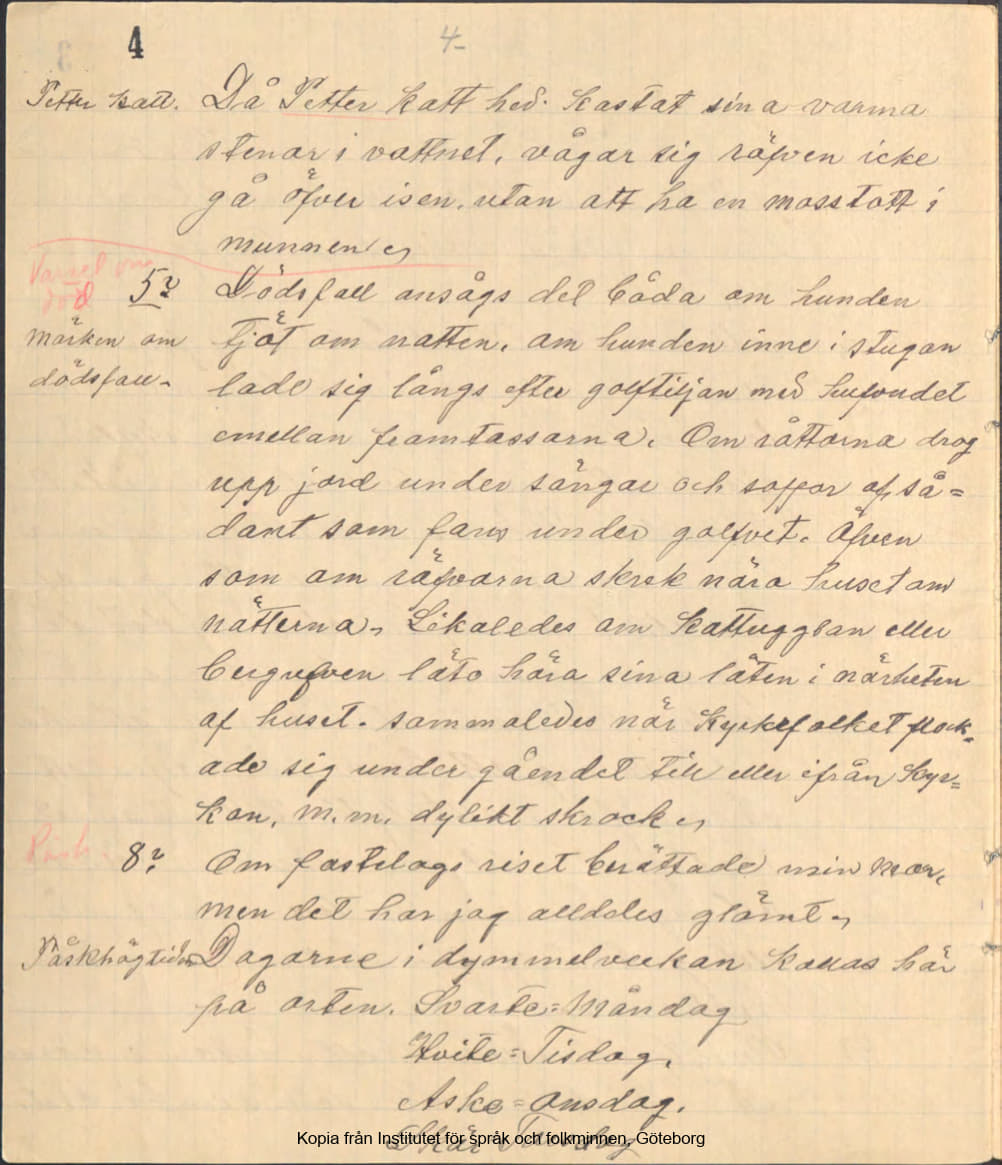 4
4-
Petter katt. Då Petter katt hed. kastat sina varma
stenar i vattnet, vågar sig räfven icke
gå öfver isen, utan att ha en mosstott i
munnen
Varsel om
död
5? Dödsfall ansågs det båda om hunden
Märken om tjöt om natten, om hunden inne i stugan
dödsfall- lade sig långs efter golftiljan med hufvudet
emellan framtassarna. Om råttorna drog
upp jord under sängar och soffor af så=
dant som fans under golfvet. Äfven
som om räfvarna skrek nära huset om
nätterna, Likaledes om kattugglan eller
bergufven läto höra sina läten i närheten
af huset. sammaledes när kyrkefolket flock=
ade sig under gåendet till eller ifrån kyr=
kan, m.m. dylikt skrock
Påsk. 8? Om fastelags riset berättade min mor,
men det har jag alldeles glömt,
Påskhögtiden Dagarne i dymmelveckan kallas här
på orten. Svarte=Måndag
Hvite=Tisdag,
Aske=onsdag.
Skär Torsdag
Kopia från Institutet för språk och folkminnen, Göteborg